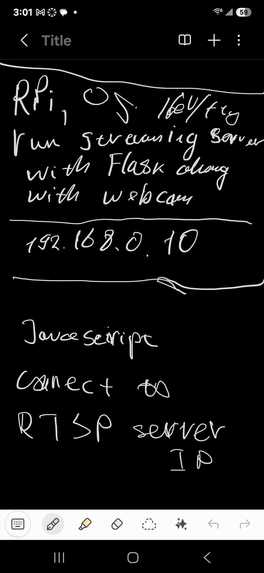 3:01
59
Title
RPi, OS
run streaming server
with Flask along
with webcam
192.168.0.10
Javascript
connect to
RTSP server
IP